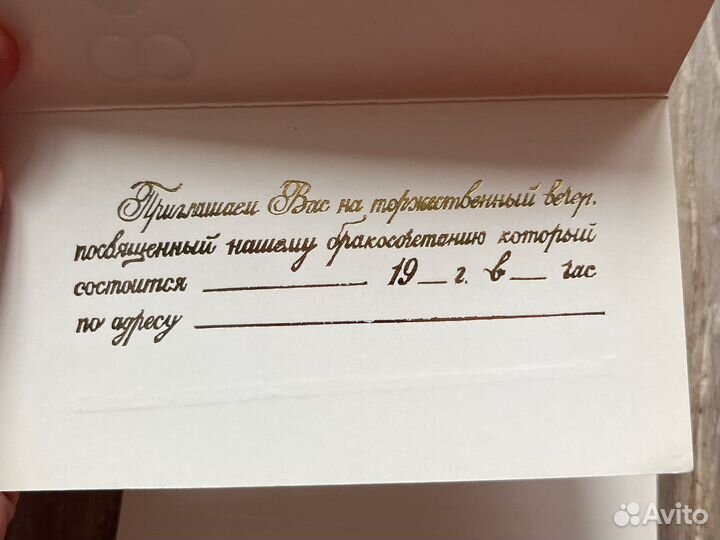 Приглашаем Вас на торжественный вечер,
посвященный нашему бракосочетанию который
состоится ____________ 19 __ г. в __ час
по адресу ______________________________
Avito